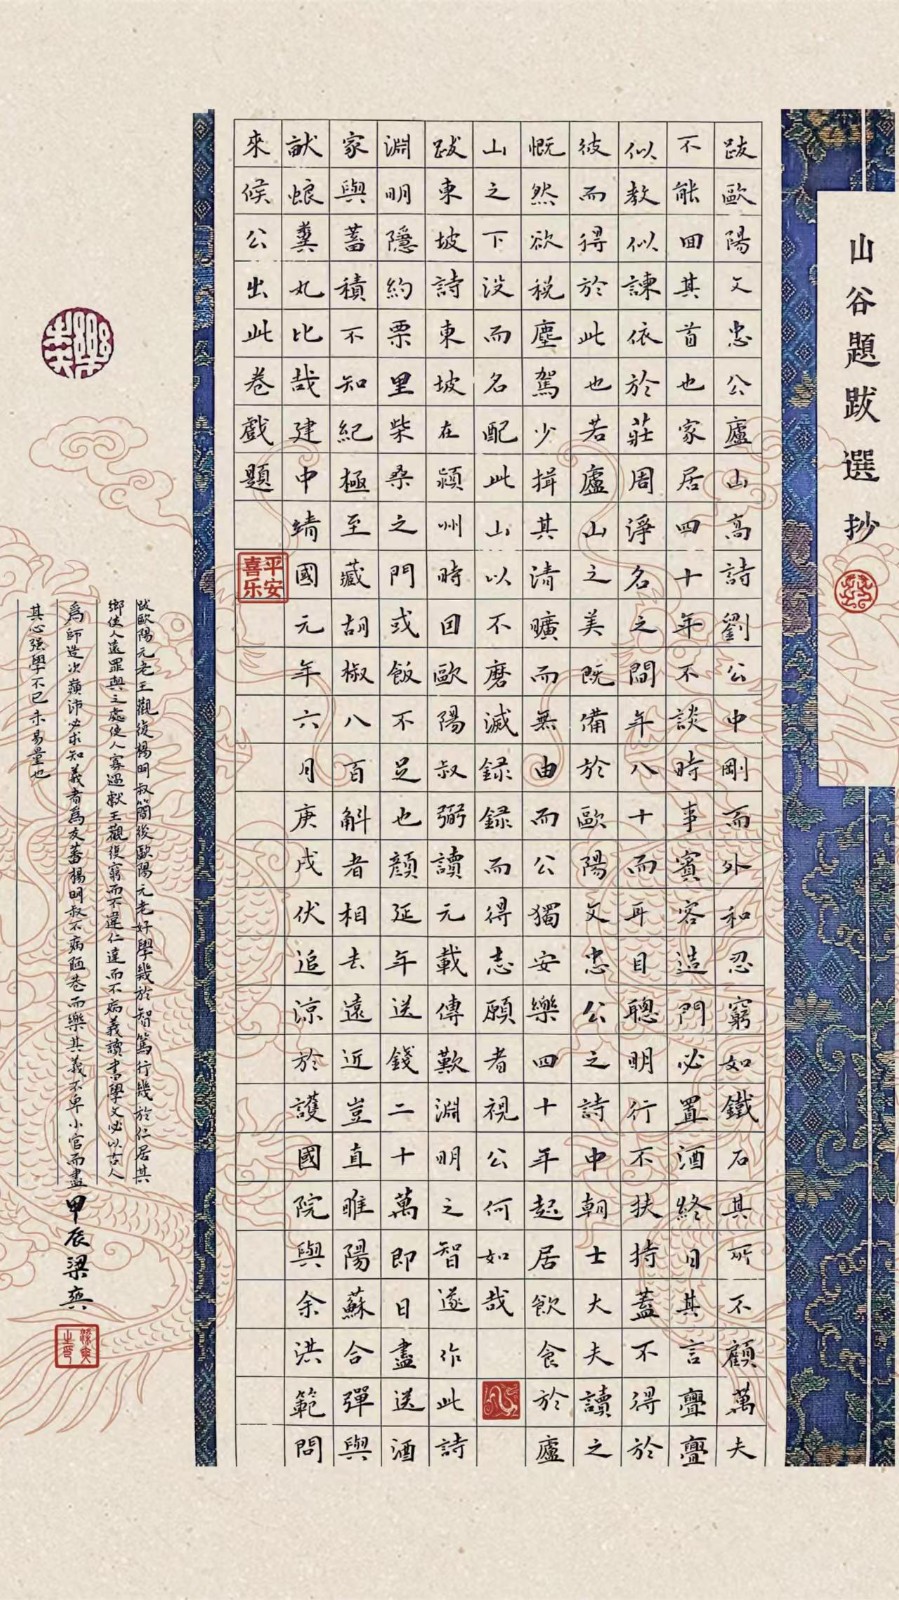 山谷題跋選抄
跋歐陽文忠公廬山高詩劉公中剛而外和忍窮如鐵石其所不顧萬夫
不能回其首也家居四十年不談時事賓客造門必置酒終日其言亹亹
似教似諫依於莊周淨名之間年八十而耳目聰明行不扶持蓋不得於
彼而得於此也若廬山之美既備於歐陽文忠公之詩中朝士大夫讀之
慨然欲稅塵駕少揖其清曠而無由而公獨安樂四十年起居飲食於廬
山之下沒而名配此山以不磨滅録録而得志願者視公何如哉
跋東坡詩東坡在潁州時因歐陽叔弼讀元載傳歎淵明之智遂作此詩
淵明隱約栗里柴桑之門或飯不足也顏延年送錢二十萬即日盡送酒
家與蓄積不知紀極至藏胡椒八百斛者相去遠近豈直睢陽蘇合彈與
猒蜋糞丸比哉建中靖國元年六月庚戌伏追涼於護國院與余洪範問
來候公出此卷戲題
平安喜乐
跋歐陽元老王觀復楊明叔簡後歐陽元老好學幾於智篤行幾於仁居其
鄉使人遠罪與之處使人寡過獻王觀復窮而不違仁達而不病義讀書學文必以古人
為師造次顛沛必求知義者為友蕃楊明叔不病陋巷而樂其義不卑小官而盡
其心強學不已未易量也
甲辰梁奕